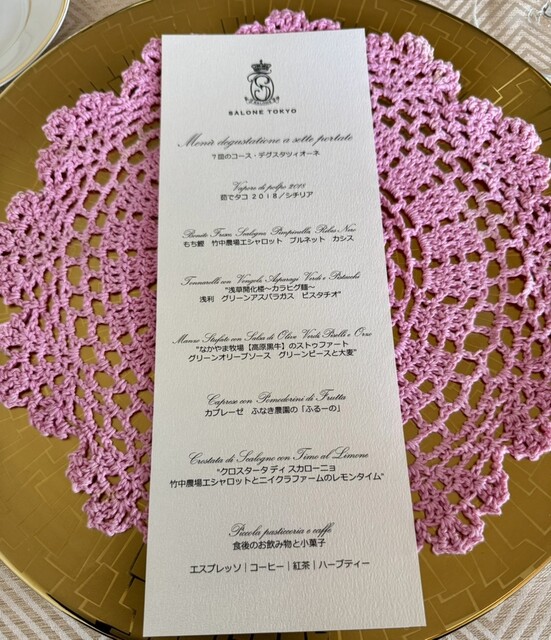 SALONE TOKYO
Menù degustazione a sette portate
７皿のコース・デグスタツィオーネ
Vapore di polpo 2018
茹でタコ ２０１８／シチリア
Bonito Fresco Scalogno Pimpinella Ribes Nero
もち鰹　竹中農場エシャロット　プルネット　カシス
Tonnarelli con Vongole Asparagi Verdi e Pistacchi
"浅草開化楼～カラヒグ麺～
浅利　グリーンアスパラガス　ピスタチオ"
Manzo Stufato con Salsa di Olive Verdi Piselli e Orzo
"なかやま牧場【高原黒牛】のストゥファート
グリーンオリーブソース　グリーンピースと大麦"
Caprese con Pomodorini di Frutta
カプレーゼ　ふなき農園の「ふるーの」
Crostata di Scalogno con Timo al Limone
"クロスタータ ディ スカローニョ
竹中農場エシャロットとニイクラファームのレモンタイム"
Piccola pasticceria e caffè
食後のお飲み物と小菓子
エスプレッソ｜コーヒー｜紅茶｜ハーブティー